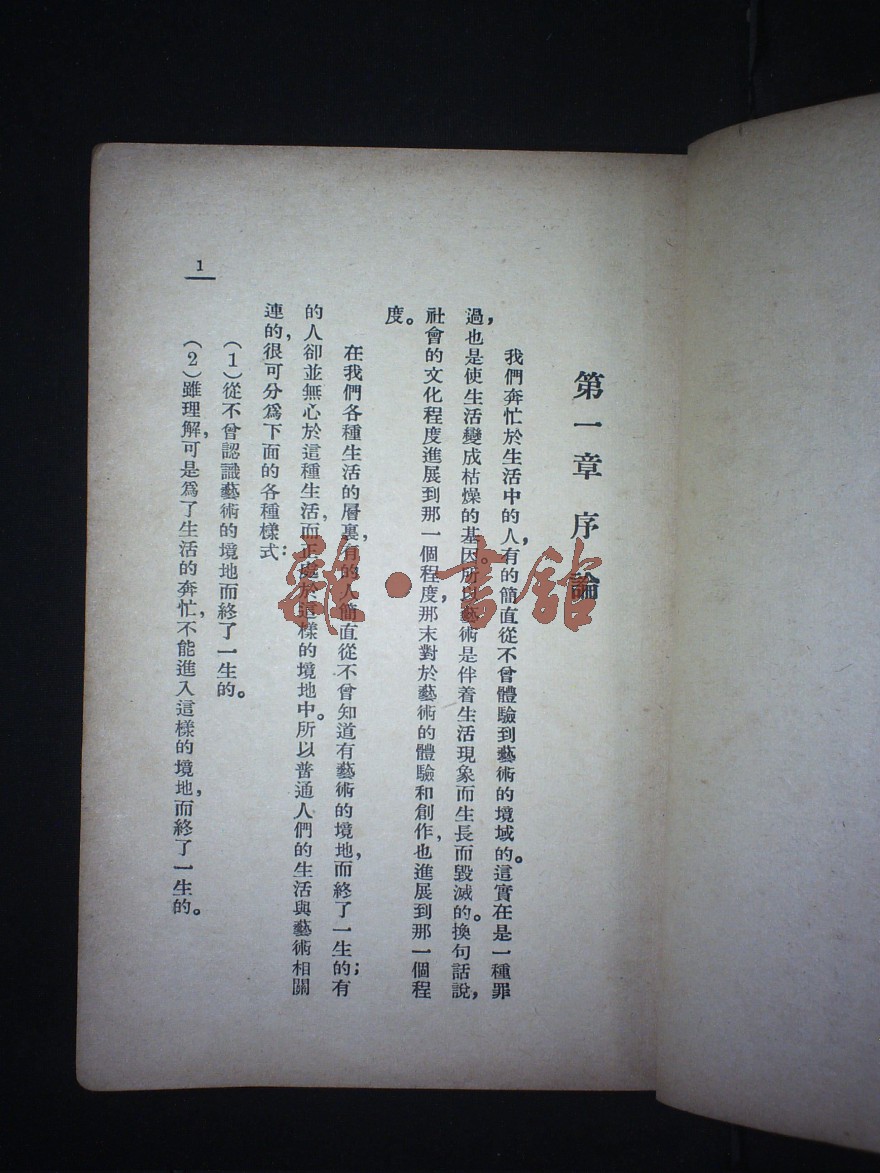 第一章 序論
我們奔忙於生活中的人，有的簡直從不曾體驗到藝術的境域的。這實在是一種罪
過，也是使生活變成枯燥的基因。所以藝術是伴着生活現象而生長而毀滅的。換句話說，
社會的文化程度進展到那一個程度，那末對於藝術的體驗和創作，也進展到那一個程
度。
在我們各種生活的層裏，有的人簡直從不曾知道有藝術的境地，而終了一生的；有
的人卻並無心於這種生活，而正處於這樣的境地中。所以普通人們的生活與藝術相關
連的，很可分爲下面的各種樣式：
（1）從不曾認識藝術的境地而終了一生的。
（2）雖理解，可是爲了生活的奔忙，不能進入這樣的境地，而終了一生的。
1
雜·書館